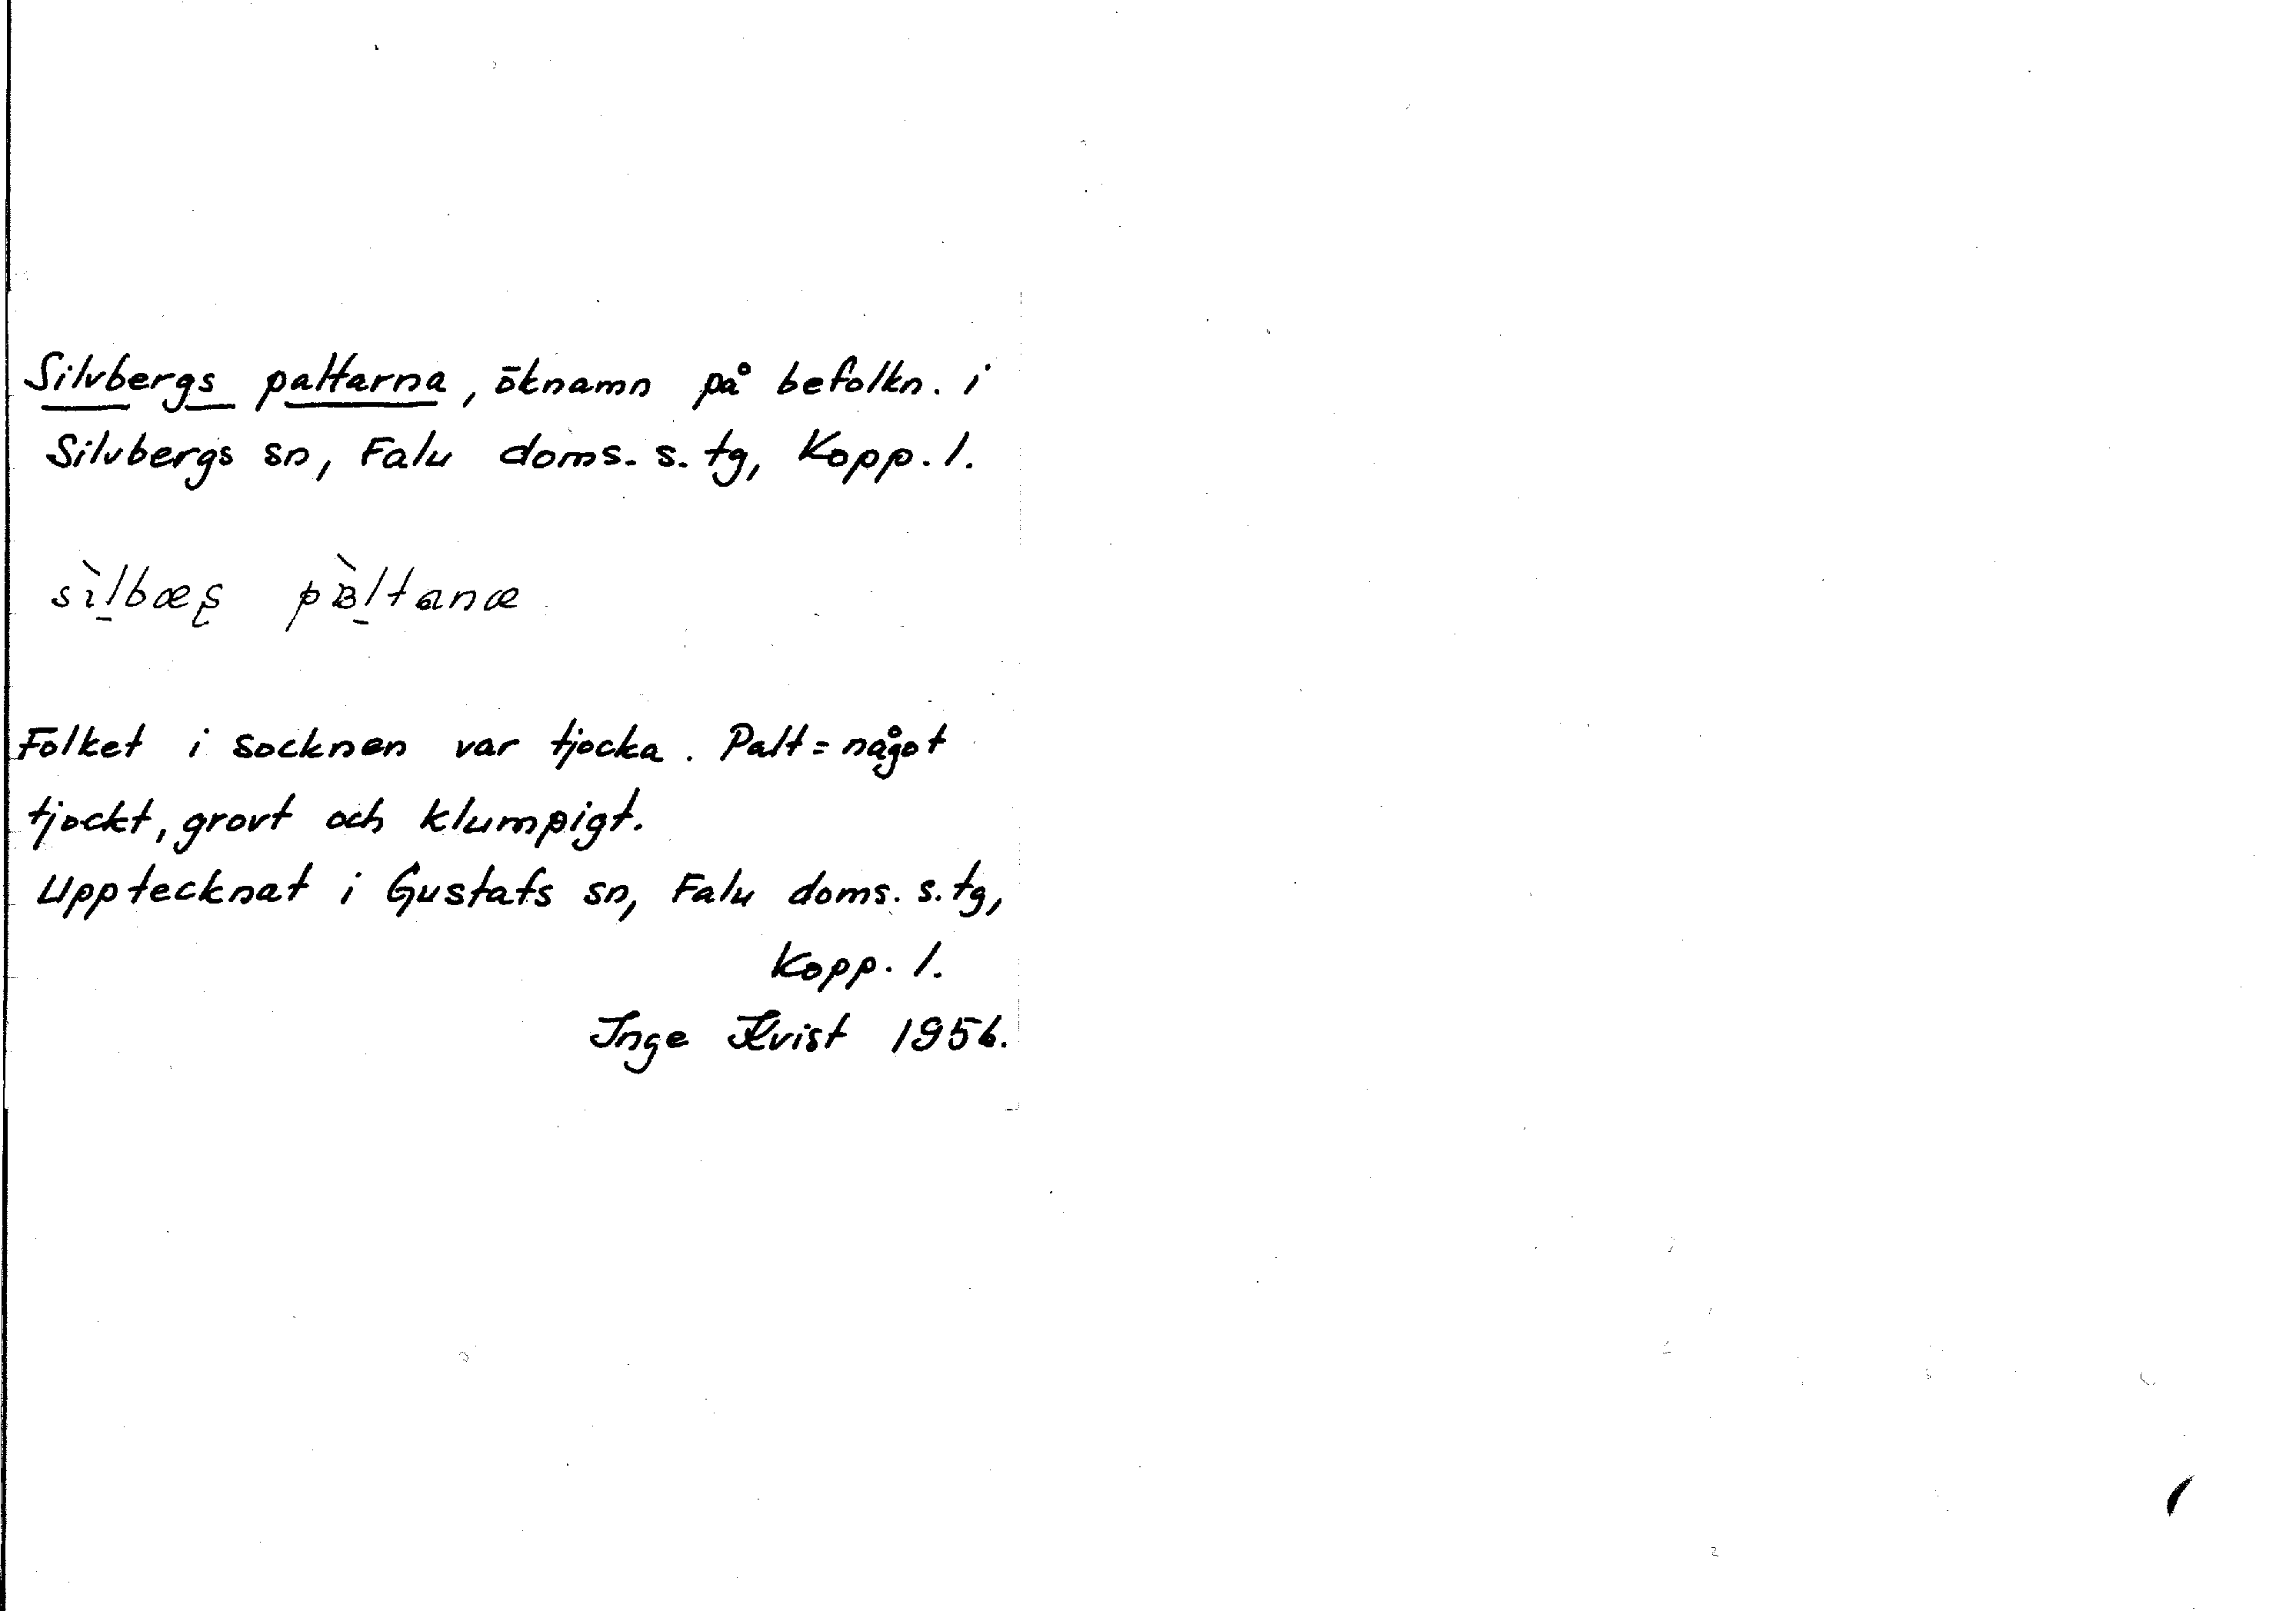 Silvbergs paltarna, öknamn på befolkn. i
Silvbergs sn, Falu doms. s. tg, Kopp. l.
sìlbæʂ pàltanæ
Folket i socknen var tjocka. Palt = något
tjockt, grovt och klumpigt.
Upptecknat i Gustafs sn, Falu doms. s. tg,
Kopp. l.
Inge Kvist 1956.